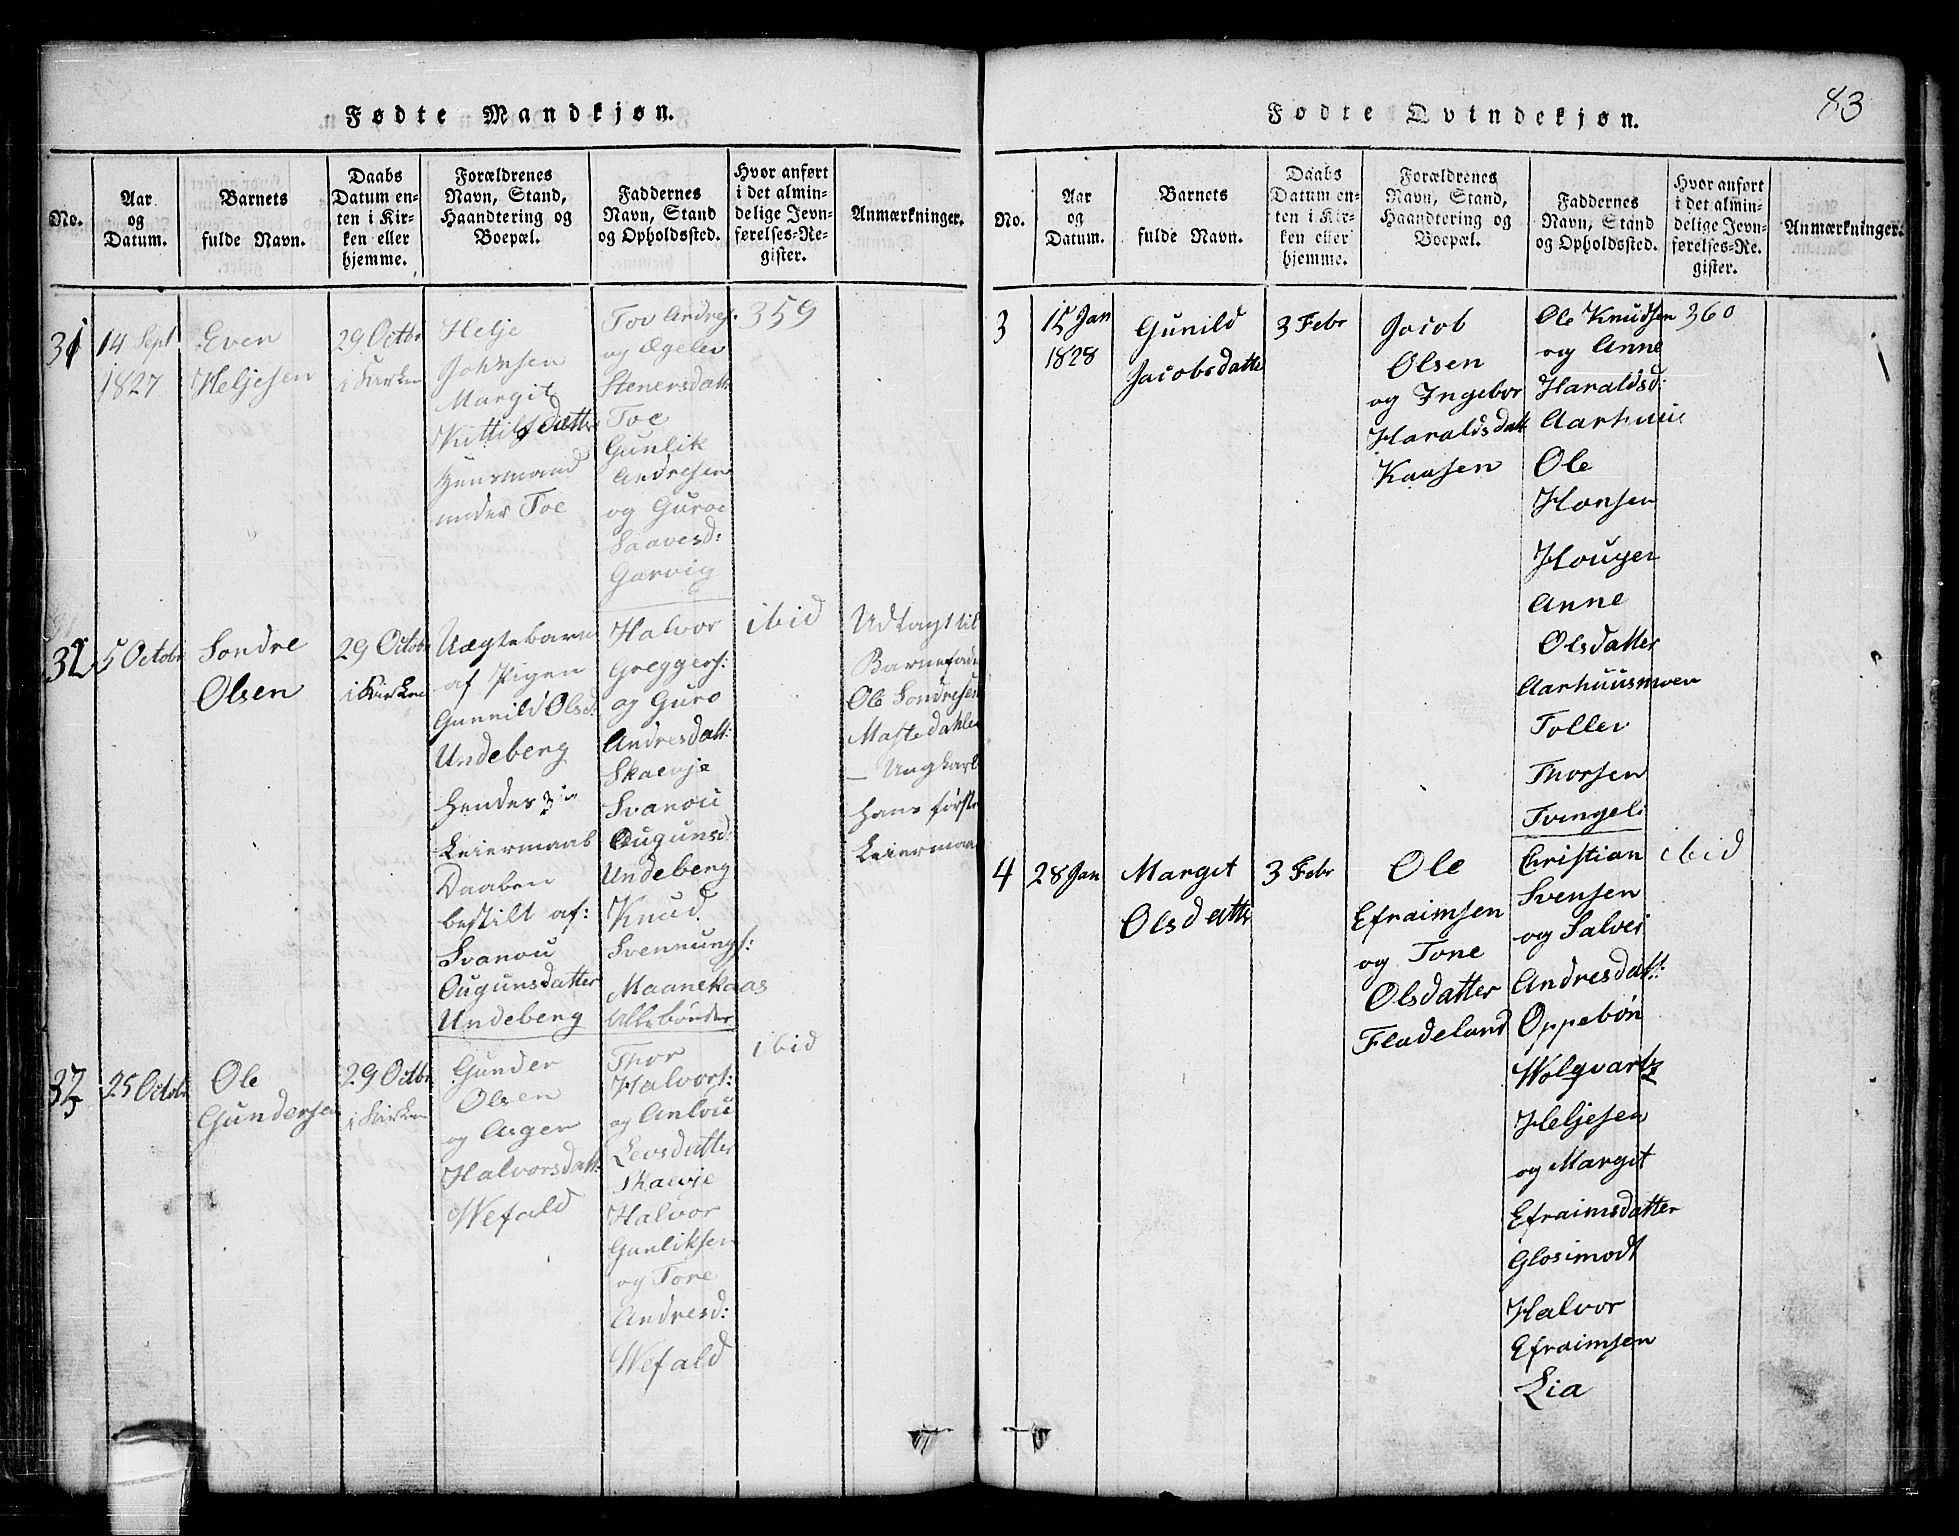 Fødte Mandkjøn.
No.
Aar
og
Datum.
Barnets
fulde Navn.
Daabs
Datum en-
ten i Kir-
ken eller
hjemme.
Forældrenes
Navn, Stand,
Haandtering og
Boepæl.
Faddernes
Navn, Stand
og Opholdssted.
Hvor anført
i det almin-
delige Jevn-
førelses-Re-
gister.
Anmærkninger.
31
14 Sept
1827
Even
Heljesen
29 Octbr
i Kirken
Helje
Johnsen
Margit
Kittilsdatter
Huusmand
under Toe
Tov Andres.
og Ægelev
Stenersdatt.
Toe
Gunlik
Andresen
og Guroe
Saavesd:
Garvig
359
32
5 Octobr
Sondre
Olsen
29 Octobr
i Kirken
Uægtebarn
af Pigen
Gunnild Olsd:
Undeberg
Hendes 3die
Leiermaal
Daaben
bestilt af:
Svanou
Ougunsdatter
Undeberg
Halvor
Greggers:
og Guro
Andresdatt:
Skaevje
Svanou
Ougunsd:
Undeberg
Knud
Svennungs:
Maanekaas
Alle bønder
ibid
Udlagt til
Barnefader
Ole Sondresen
Mastedahlen
– Ungkarl
hans første
Leiermaal
33
25 Octobr
Ole
Gundersen
29 Octbr
i Kirken
Gunder
Olsen
og Asger
Halvorsdatt.
Wefald
Thor
Halvors:
og Anlou
Levsdatter
Skaevje
Halvor
Gunliksen
og Tone
Andresd:
Wefald
ibid
Fødte Qvindekjøn.
83
No.
Aar
og
Datum.
Barnets
fulde Navn.
Daabs
Datum en-
ten i Kir-
ken eller
hjemme.
Forældrenes
Navn, Stand,
Haandtering og
Boepæl.
Faddernes
Navn, Stand
og Opholdssted.
Hvor anført
i det almin-
delige Jevn-
førelses-Re-
gister.
Anmærkninger.
3
15 Jan
1828
Gunild
Jacobsdatter
3 Febr
Jacob
Olsen
og Ingebor
Haraldsdatt
Kaasen
Ole Knudsen
og Anne
Haraldsd:
Aarhuus
Ole
Hansen
Hougen
Anne
Olsdatter
Aarhuusmoen
Tollev
Thorsen
Tvengeli
360
4
28 Jan
Margit
Olsdatter
3 Febr
Ole
Efraimsen
og Tone
Olsdatter
Fladeland
Christian
Svensen
og Salvei
Andresdatt:
Oppebøn
Wolqvartz
Heljesen
og Margit
Efraimsdatter
Glosimodt
Halvor
Efraimsen
Lia
ibid